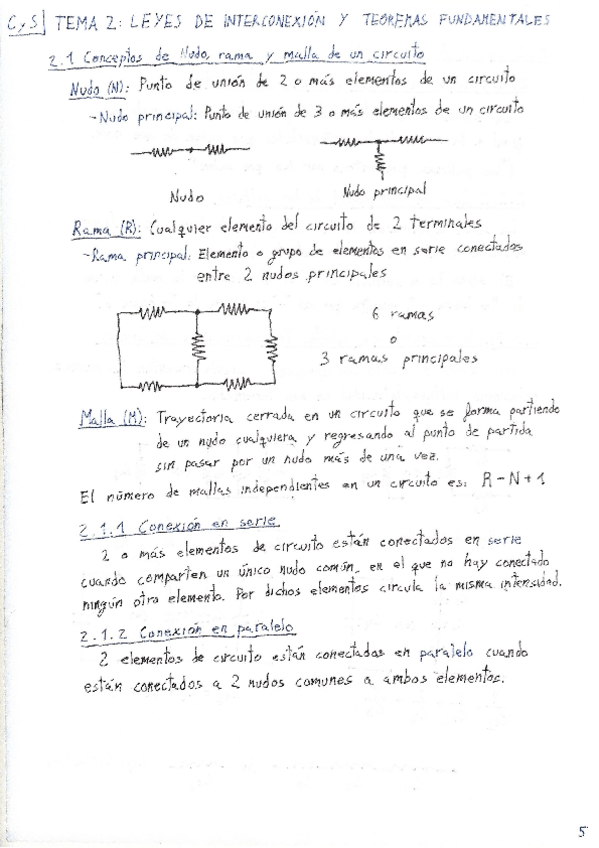 C y S TEMA 2: LEYES DE INTERCONEXIÓN Y TEOREMAS FUNDAMENTALES
2.1 Conceptos de Nudo, rama y malla de un circuito
Nudo (N): Punto de unión de 2 o más elementos de un circuito
- Nudo principal: Punto de unión de 3 o más elementos de un circuito
Nudo
Nudo principal
Rama (R): Cualquier elemento del circuito de 2 terminales
- Rama principal: Elemento o grupo de elementos en serie conectados
entre 2 nudos principales
6 ramas
o
3 ramas principales
Malla (M): Trayectoria cerrada en un circuito que se forma partiendo
de un nudo cualquiera y regresando al punto de partida
sin pasar por un nudo más de una vez.
El número de mallas independientes en un circuito es: R - N + 1
2.1.1 Conexión en serie
2 o más elementos de circuito están conectados en serie
cuando comparten un único nudo común, en el que no hay conectado
ningún otro elemento. Por dichos elementos circula la misma intensidad.
2.1.2 Conexión en paralelo
2 elementos de circuito están conectados en paralelo cuando
están conectados a 2 nudos comunes a ambos elementos.
5